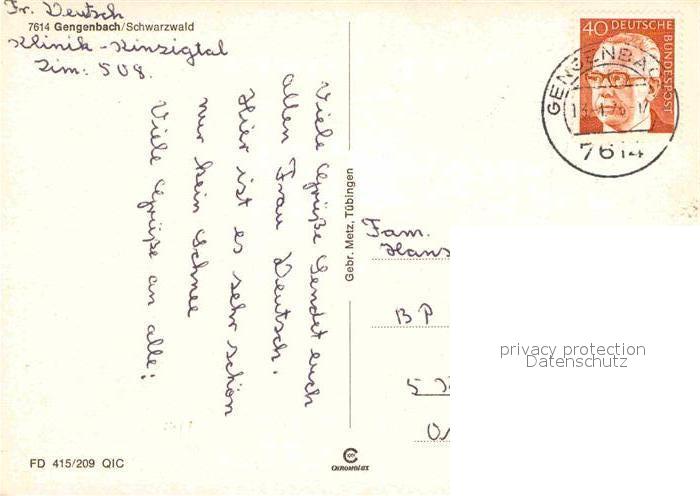 Fr. Deutsch
7614 Gengenbach/Schwarzwald
Klinik-Kinzigtal
Zim: 508.
Viele Grüße Sendet euch
allen Frau Deutsch.
Hier ist es sehr schön
nur kein Schnee
Viele Grüße an alle!
Gebr. Metz, Tübingen
40 DEUTSCHE
BUNDESPOST
GENGENBAC
7614
Fam.
Hans
BP
5
privacy protection
Datenschutz
FD 415/209 QIC
CHROMOLUX